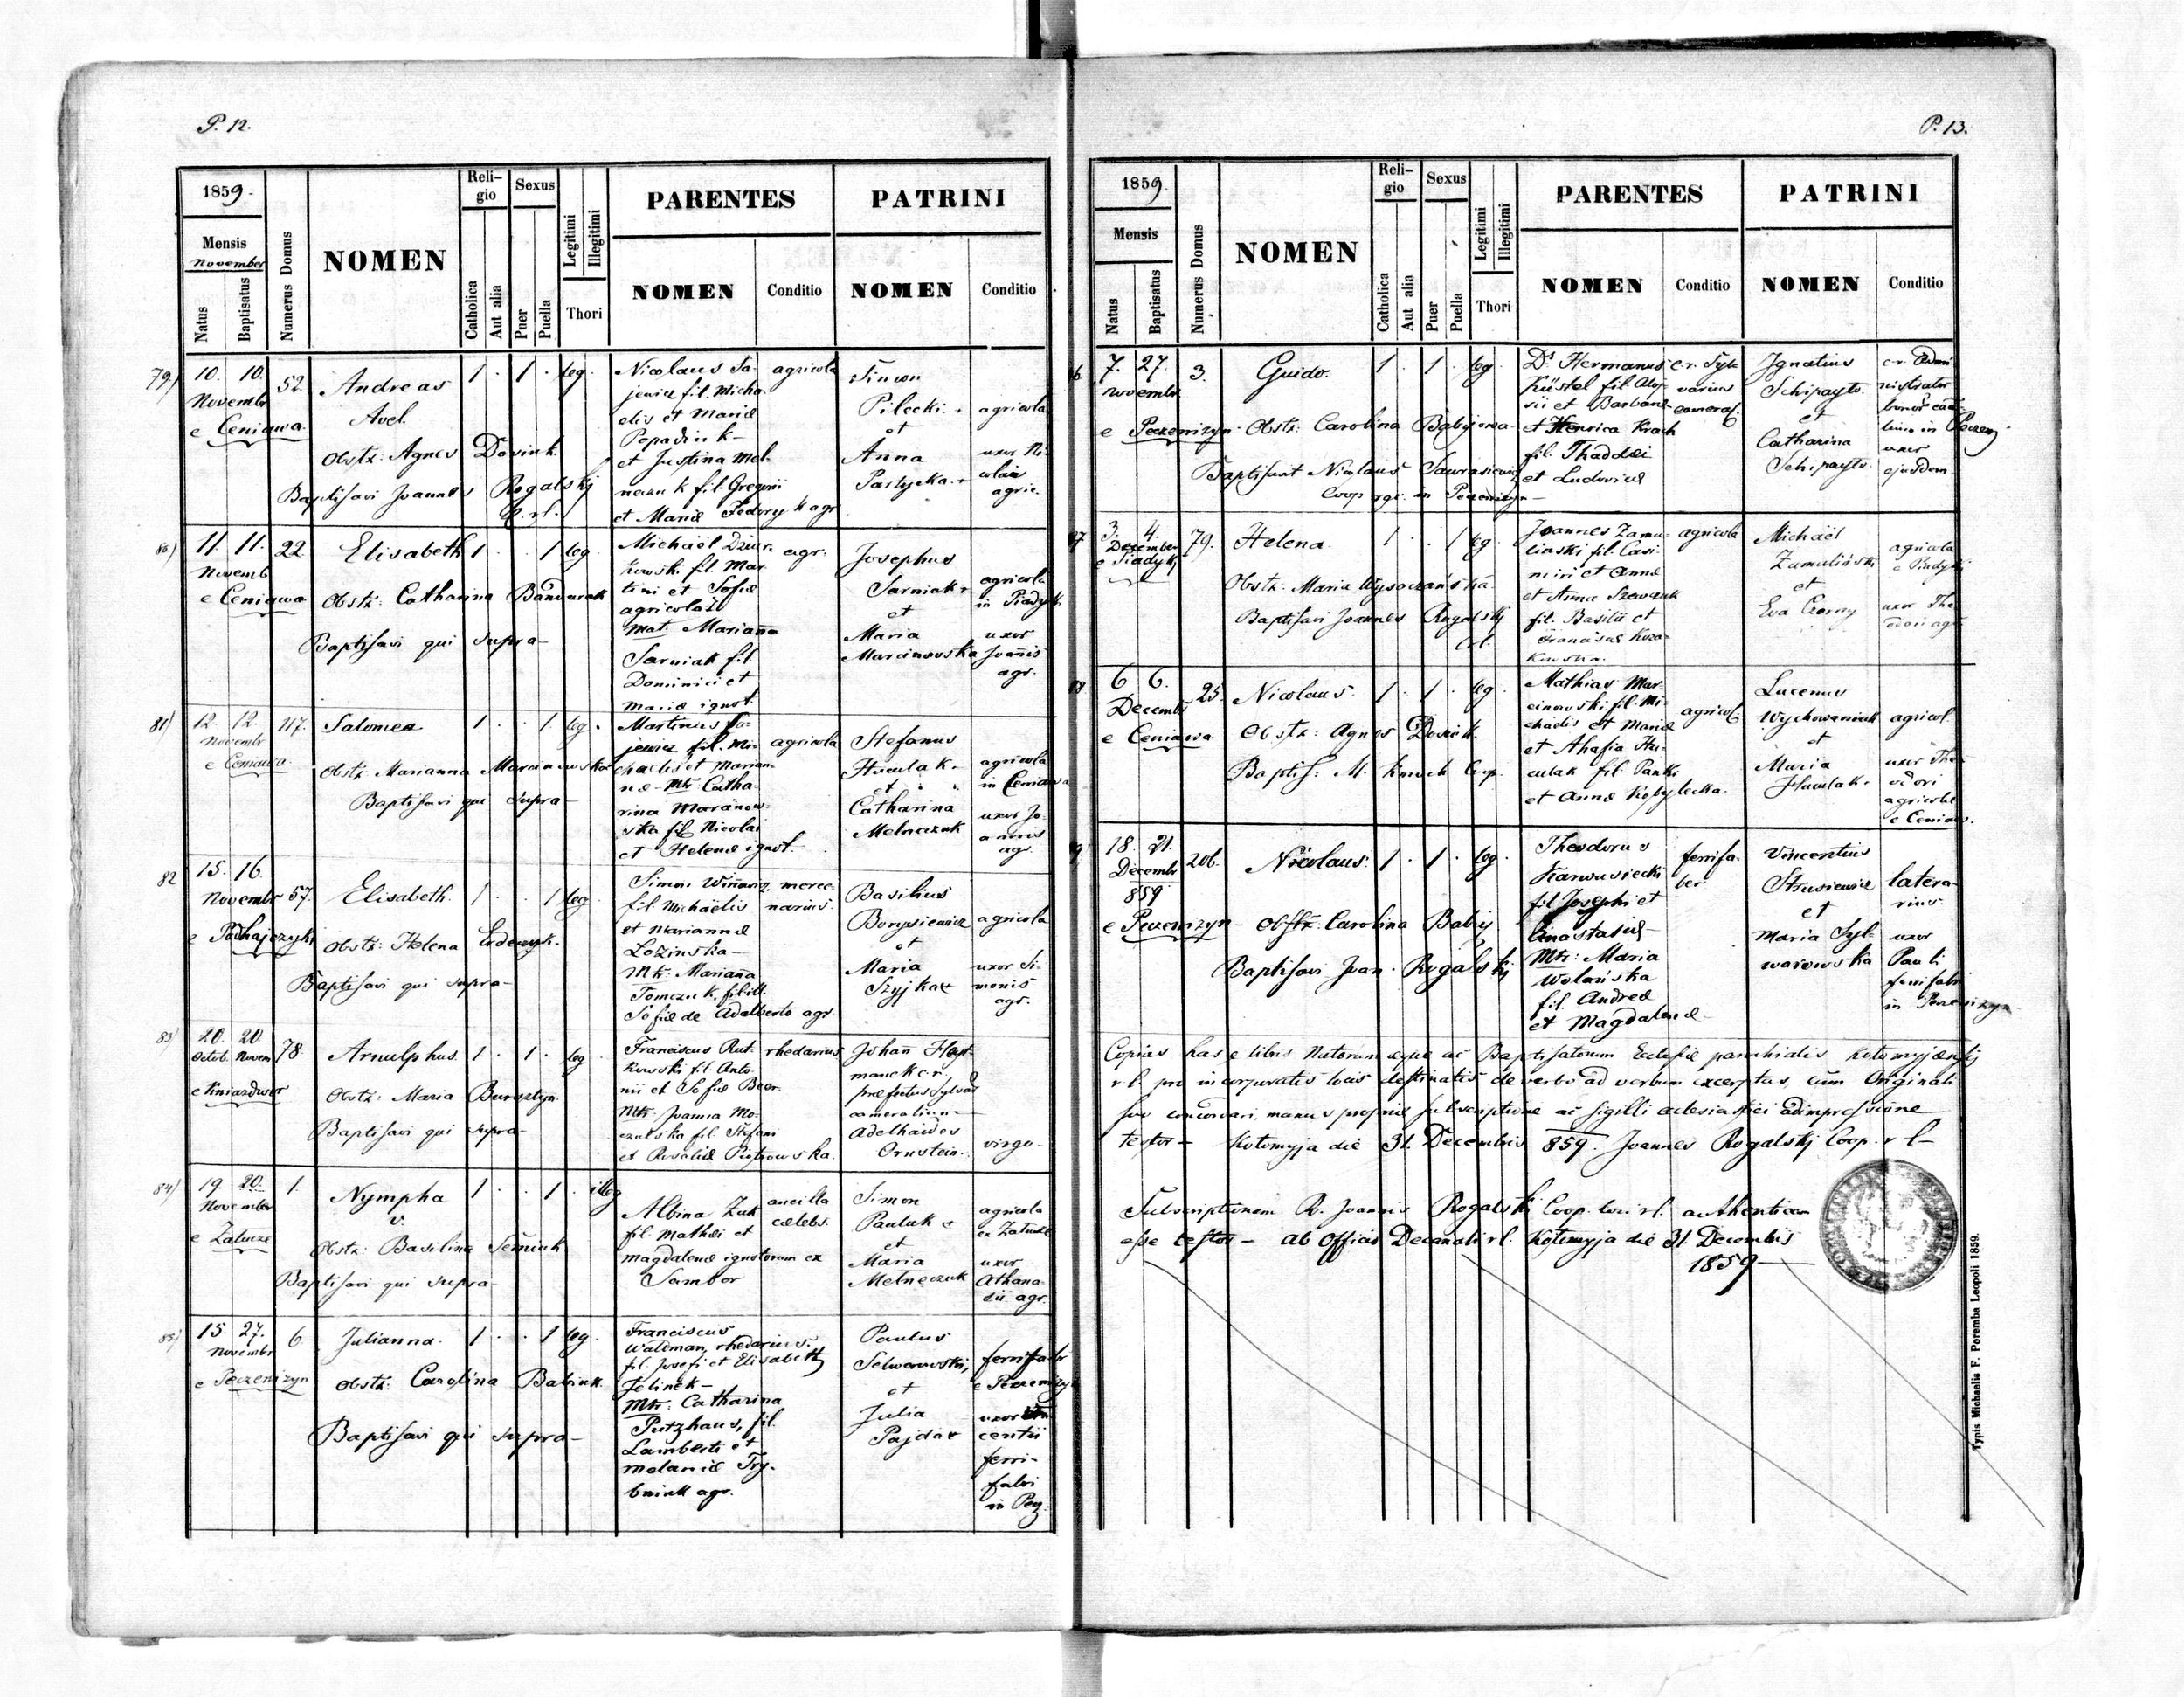 P. 12.
1859.
Mensis
November
Natus
Baptisatus
Numerus Domus
NOMEN
Reli-
gio
Catholica
Aut alia
Sexus
Puer
Puella
Legitimi
Illegitimi
Thori
PARENTES
NOMEN
Conditio
PATRINI
NOMEN
Conditio
79)
10. 10.
Novembr
e Ceniawa
52.
Andreas
Avel.
Obstz: Agnes
Baptisavi Joannes Rogalskj
C. rl.
1 . 1 . leg.
Nicolaus Ja-
jewicz fil. Micha-
elis et Mariæ
Popadiuk-
et Justina Mel-
neczuk fil. Gregorii
et Mariæ Fedoryk agr
agricola
Simon
Pilecki +
et
Anna
agricola
uxor Ni-
colai
agric.
80)
11. 11.
Novemb
e Ceniawa
22
Elisabeth
Obstz: Catharina Bandurak
Baptisavi qui supra-
1 . . 1 leg
Michaël
fil. Mar-
tini et Sofiæ
agricolas
Mat: Marianna
Sarniak fil.
Dominici et
Mariæ ignot.
agr.
Josephus
Sarniak +
et
Maria
Marcinowska
agricola
in Piadyk
uxor
Joañis
agr.
81)
12. 12.
Novembr
e Ceniawa
117.
Salomea
Obstz. Marianna Marcinowska
Baptisavi qui supra-
1 . . 1 leg.
Martinus Ja-
jewicz fil. Mi-
chaelis et Marian-
næ - Mtr: Catha-
rina Marcinow-
ska fil. Nicolai
et Helenæ ignot.
agricola
Stefanus
Huculak.
et
Catharina
Melneczuk
agricola
in Ceniawa
uxor Jo-
annis
ag.
82
15. 16.
Novembr
e Podhajczyki
57.
Elisabeth.
Obstz: Helena
Baptisavi qui supra-
1 . . 1 leg
Simon
fil. Michaëlis
et Mariannæ
Lozinska-
Mtr: Mariana
Tomczuk, fil. ill.
Sofiæ de Adalberto agr.
merce-
narius.
Basilius
Borysiewicz
et
Maria
Szyjka +
agricola
uxor Si-
monis
agr.
83)
20. 20
Octob. Novem
e Kniazdwor
78
Arnulphus.
Obstz: Maria Bursztyn
Baptisavi qui supra-
1 . 1 . leg
Franciscus Rut-
kowski fil. Anto-
nii et Sofiæ Beer.
Mtr: Joanna Mo-
czulska fil. Stefani
et Rosaliæ Piotrowska.
rhedarius
Johañ Hapt-
man c. r.
præfectus Sylvar
cameralium
Adelhaides
Ornstein.
virgo-
84)
19. 20.
November
e Zalucze
1.
Nympha
Obstz: Basilina Semiuk
Baptisavi qui supra-
1 . . 1 . illeg
Albina Zuk
fil. Mathei et
Magdalenæ ignotorum ex
Sambor
ancilla
cælebs.
Simon
Pauluk +
et
Maria
Melneczuk
agricola
ex Zalucze
uxor
Athana-
sii agr.
85)
15. 27.
Novembr
e Peczenizyn
6
Julianna.
Obstz: Carolina Babiuk
Baptisavi qui supra-
1 . . 1 leg.
Franciscus
Waldman, rhedarius.
fil. Josefi et Elisabeth
Jelinek-
Mtr: Catharina
Putzhaus, fil.
Lamberti et
Melaniæ Try-
bniak agr.
Paulus
et
Julia
Pajdo +
ferrifaber
e Peczenizyn
uxor
centii
ferri-
fabri
in Pecz.
P. 13.
1859.
Mensis
Natus
Baptisatus
Numerus Domus
NOMEN
Reli-
gio
Catholica
Aut alia
Sexus
Puer
Puella
Legitimi
Illegitimi
Thori
PARENTES
NOMEN
Conditio
PATRINI
NOMEN
Conditio
7. 27.
Novembr
e Peczenizyn
3.
Guido.
Obstz: Carolina Babijowa
Baptisavit Nicolaus
Coop rgc. in Peczenizyn-
1 . 1 . leg
Dr Hermanus
Küstel fil. Aloy-
sii et Barbaræ
et Henrica Krach
fil. Thaddei
et Ludovicæ
c. r. Syl-
varius
cameral.
Ignatius
Schipayto.
et
Catharina
Schipayto.
c. r. Admi
nistrator
bonor
in Peczeniz
uxor
ejusdem
87
3. 4.
December
e Piadyki
79.
Helena
Obstz: Maria Wysoczańska
Baptisavi Joannes Rogalskj
Crl.
1 . . 1 leg
Joannes Zamu-
linski fil. Casi-
miri et Annæ
et Anna Szewczuk
fil. Basilii et
Franciscæ Koza-
kowska.
agricola
Michaël
Zamuliński
et
Eva Czerny
agricola
e Piadyki
uxor The-
dori agr
88
6 6.
Decembr
e Ceniawa
25.
Nicolaus.
Obstz: Agnes
Baptis: M. Coop.
1 . 1 . leg
Mathias Mar-
cinowski fil. Mi-
chaelis et Mariæ
et Ahafia Hu-
culak fil. Panki
et Annæ Kobylecka.
agricol.
Lucenus
et
Maria
Huculak.
agricol.
uxor The-
odori
agricolæ
e Ceniaw.
18. 21.
Decembr
859
e Peczenizyn
206.
Nicolaus.
Obstz: Carolina Babij
Baptisavi Joan. Rogalskj
1 . 1 . leg
Theodorus
fil Josephi et
Anastasiæ
Mtr: Maria
Wolańska
fil. Andreæ
et Magdalenæ-
ferrifa-
ber
Vincentius
Strusiewicz
et
Maria Syl-
warowska
latera-
rius.
uxor
Pauli
ferrifabri
in Peczenizyn
Copias has e libris Natorum æque ac Baptisatorum Ecclesiæ parochialis Kolomyjensis
rl. pro incorporatis locis destinatis de verbo ad verbum excerptas, cum Originali
suo concordari, manus propriæ subscriptione ac sigilli ecclesiastici adimpressione
testor- Kolomyja die 31. Decembris 859. Joannes Rogalskj Coop. rl-
Subscriptionem R. Joannis Rogalski Coop. loci rl. authenticam
esse testor- Ab Officio Decanali rl. Kolomyja die 31. Decembris
1859-
Typis Michaelis F. Poremba Leopoli 1859.